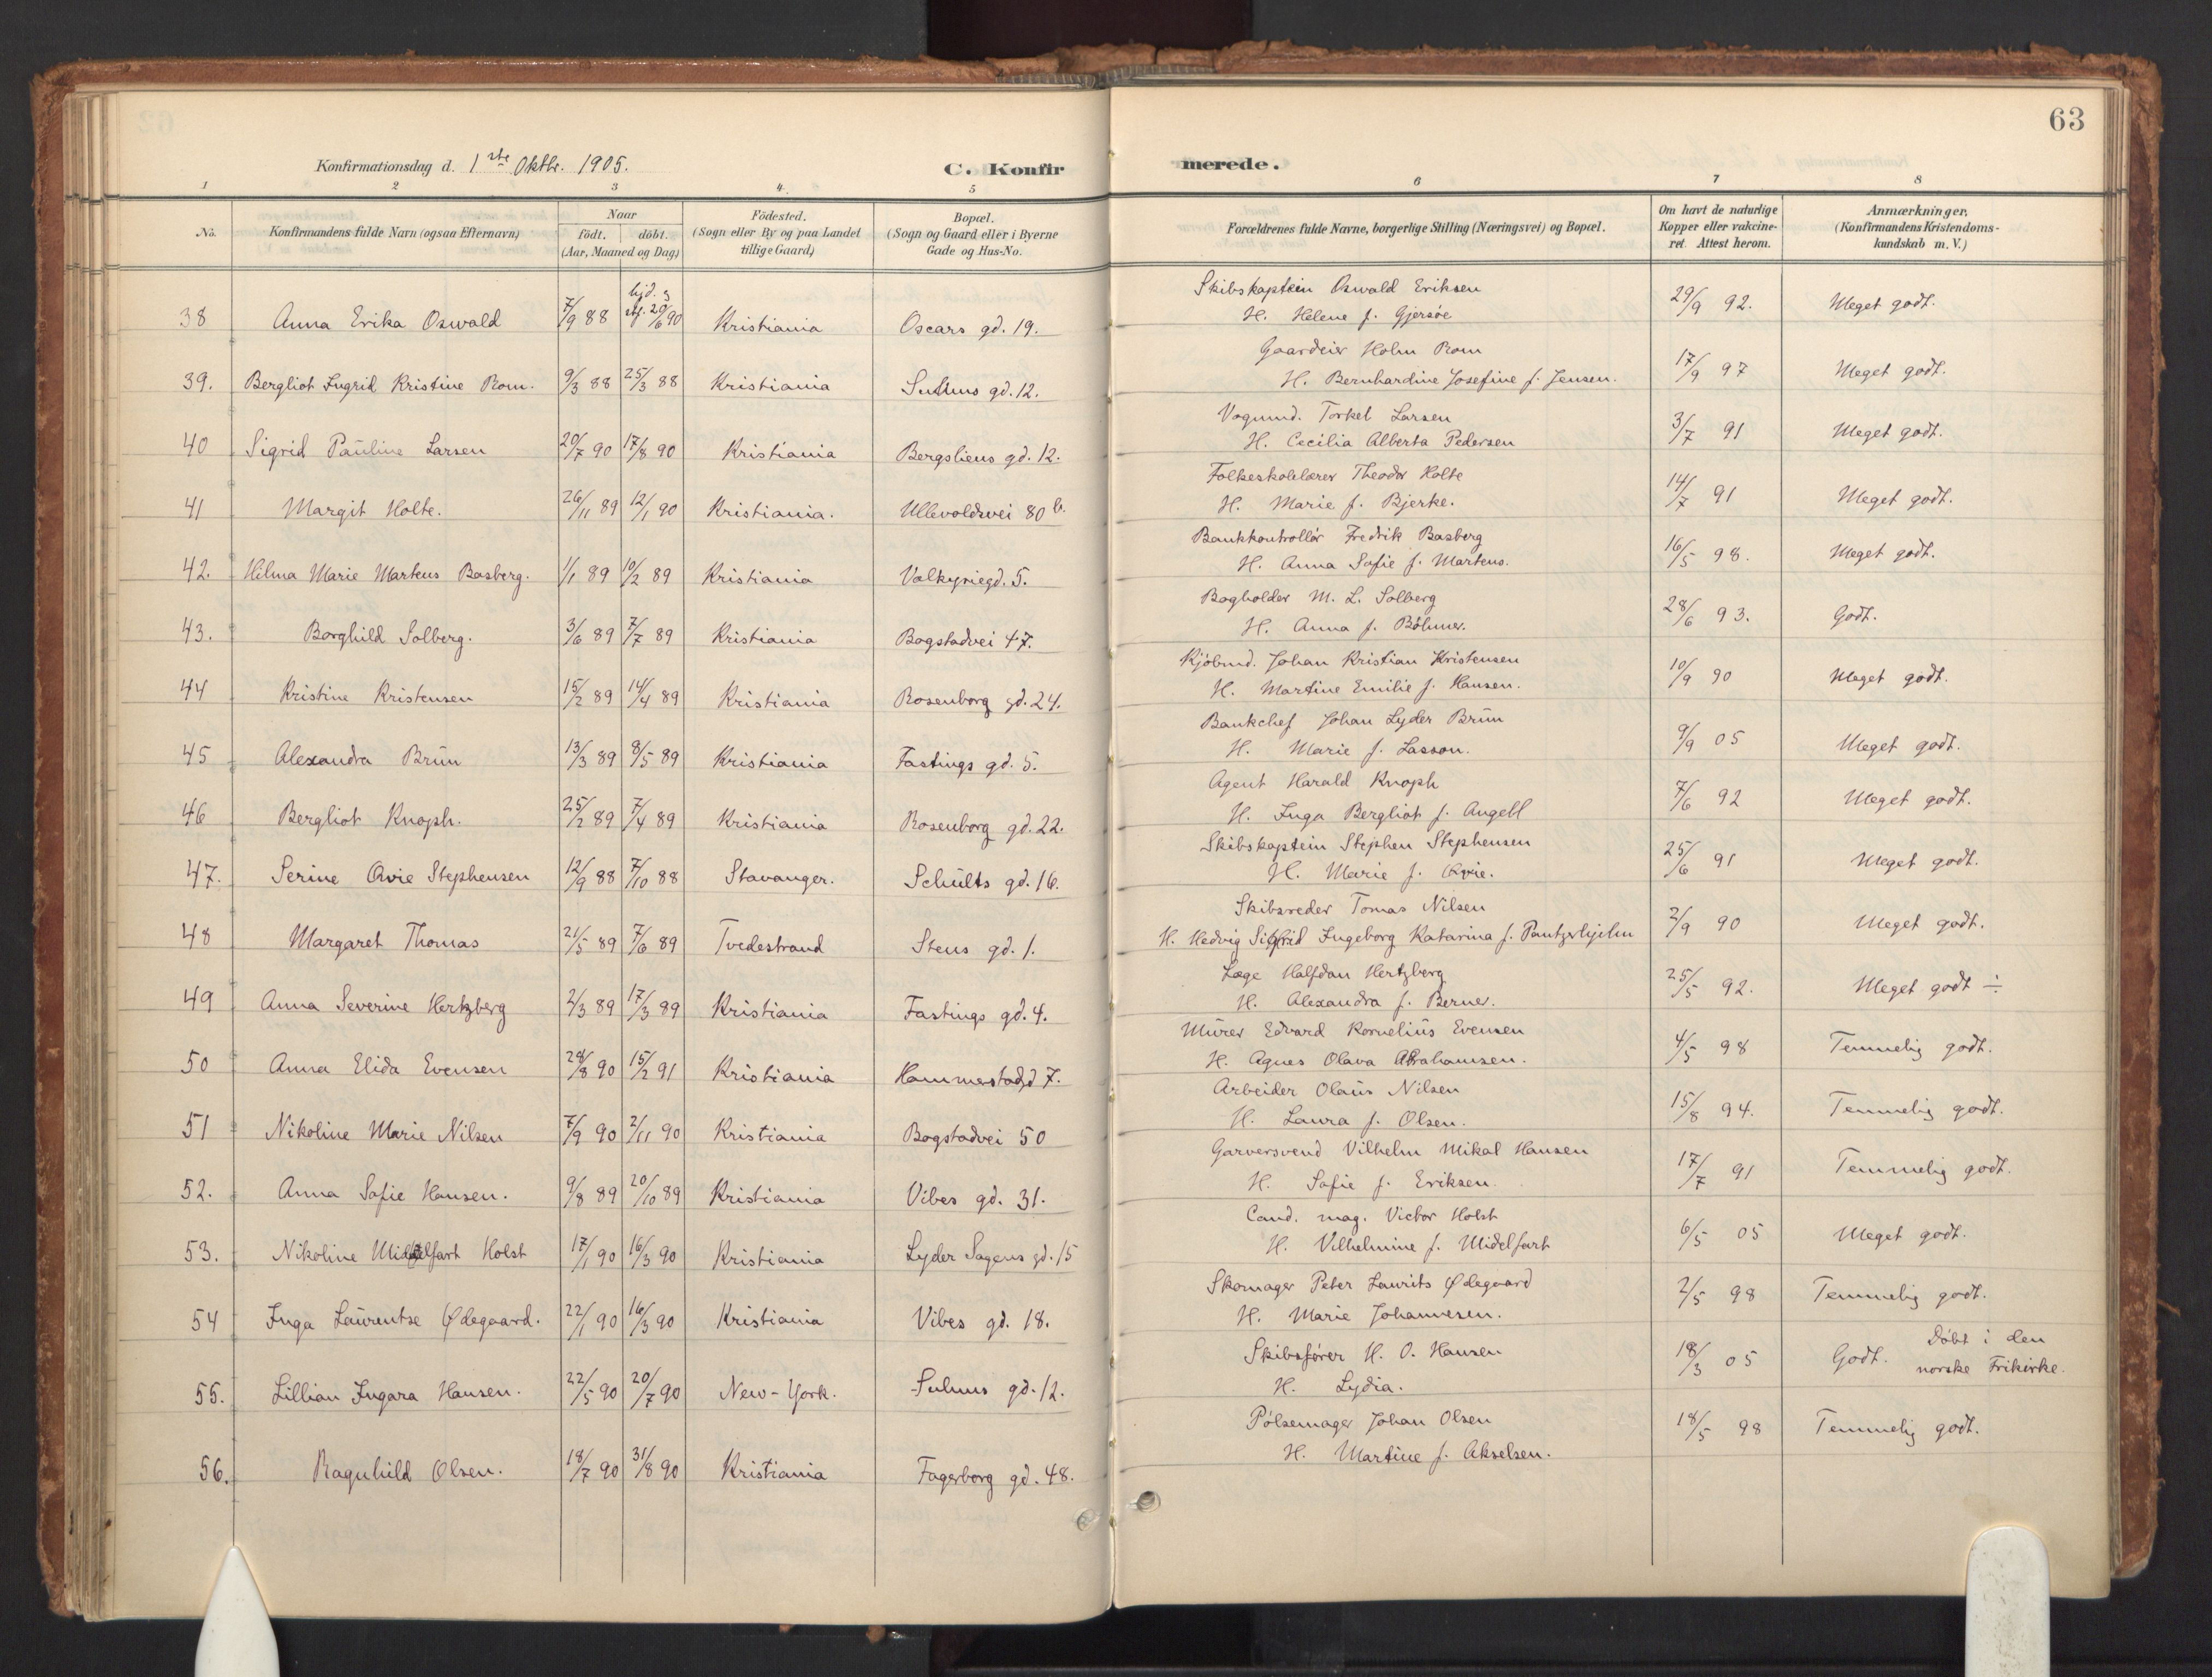 63
Konfirmationsdag d. 1ste Oktbr. 1905. C. Konfirmerede.
1 2 3 4 5 6 7 8
No. Konfirmandens fulde Navn (ogsaa Efternavn) Naar födt. döbt. (Aar, Maaned og Dag) Födested. (Sogn eller By og paa Landet tillige Gaard) Bopæl. (Sogn og Gaard eller i Byerne Gade og Hus-No. Forældrenes fulde Navne, borgerlige Stilling (Næringsvei) og Bopæl. Om havt de naturlige Kopper eller vakcineret. Attest herom. Anmærkninger. (Konfirmandens Kristendomskundskab m. V.)
38 Anna Erika Oswald 7/9 88 hjd. stf. 20/6 90 Kristiania Oscars gd. 19. Skibskaptein Oswald Eriksen 29/9 92. Meget godt.
H. Helene f. Gjersøe
39. Bergliot Ingrid Kristine Rom. 9/3 88 25/3 88 Kristiania Suhms gd. 12. Gaardeier Holm Rom 17/9 97 Meget godt.
H. Bernhardine Josefine f. Jensen.
40 Sigrid Pauline Larsen 20/7 90 17/8 90 Kristiania Bergsliens gd. 12. Vognmd. Torkel Larsen 3/7 91 Meget godt.
H. Cecilia Alberta Pedersen
41 Margit Holte. 26/11 89 12/1 90 Kristiania. Ullevoldsvei 80 b. Folkeskolelærer Theodor Holte 14/7 91 Meget godt.
H. Marie f. Bjerke.
42. Hilma Marie Martens Basberg. 1/1 89 10/2 89 Kristiania Valkyriegd. 5. Bankkontrollør Fredrik Basberg 16/5 98. Meget godt.
H. Anna Sofie f. Martens.
43. Borghild Solberg. 3/6 89 7/7 89 Kristiania Bogstadvei 47. Bogholder M. L. Solberg 28/6 93. Godt.
H. Anna f. Bøhmer.
44 Kristine Kristensen 15/2 89 14/4 89 Kristiania Rosenborg gd. 24. Kjøbmd. Johan Kristian Kristensen 10/9 90 Meget godt.
H. Martine Emilie f. Hansen.
45 Alexandra Brun 13/3 89 8/5 89 Kristiania Fastings gd. 5. Bankchef Johan Lyder Brun 9/9 05 Meget godt.
H. Marie f. Lasson.
46 Bergliot Knoph. 25/2 89 7/4 89 Kristiania Rosenborg gd. 22. Agent Harald Knoph 7/6 92 Meget godt.
H. Inga Bergliot f. Angell
47. Serine Qvie Stephensen 12/9 88 7/10 88 Stavanger. Schults gd. 16. Skibskaptein Stephen Stephensen 25/6 91 Meget godt.
H. Marie f. Qvie.
48 Margaret Thomas 21/5 89 7/6 89 Tvedestrand Stens gd. 1. Skibsreder Tomas Nilsen 2/9 90 Meget godt.
H. Hedvig Sigfrid Ingeborg Katarina f. Pantzerhjelm
49 Anna Severine Hertzberg 2/3 89 17/3 89 Kristiania Fastings gd. 4. Læge Halfdan Hertzberg 25/5 92. Meget godt ÷
H. Alexandra f. Berner.
50 Anna Elida Evensen 28/8 90 15/2 91 Kristiania Hammerstadgd 7. Murer Edvard Kornelius Evensen 4/5 98 Temmelig godt.
H. Agnes Olava Abrahamsen.
51 Nikoline Marie Nilsen 7/9 90 2/11 90 Kristiania Bogstadvei 50 Arbeider Olaus Nilsen 15/8 94. Temmelig godt.
H. Laura f. Olsen.
52. Anna Sofie Hansen. 9/8 89 20/10 89 Kristiania Vibes gd. 31. Garversvend Vilhelm Mikal Hansen 17/7 91 Temmelig godt.
H. Sofie f. Eriksen.
53. Nikoline Midelfart Holst 17/1 90 16/3 90 Kristiania Lyder Sagens gd. 15 Cand. mag. Victor Holst 6/5 05 Meget godt.
H. Vilhelmine f. Midelfart
54 Inga Laurentse Ødegaard. 22/1 90 16/3 90 Kristiania Vibes gd. 18. Skomager Peter Laurits Ødegaard 2/5 98 Temmelig godt.
H. Marie Johannesen.
55. Lillian Ingara Hansen. 22/5 90 20/7 90 New-York. Suhms gd. 12. Skibsfører H. O. Hansen 18/3 05 Godt. Døbt i den norske Frikirke.
H. Lydia.
56. Ragnhild Olsen. 18/7 90 31/8 90 Kristiania Fagerborg gd. 48. Pølsemager Johan Olsen 18/5 98 Temmelig godt.
H. Martine f. Akselsen.